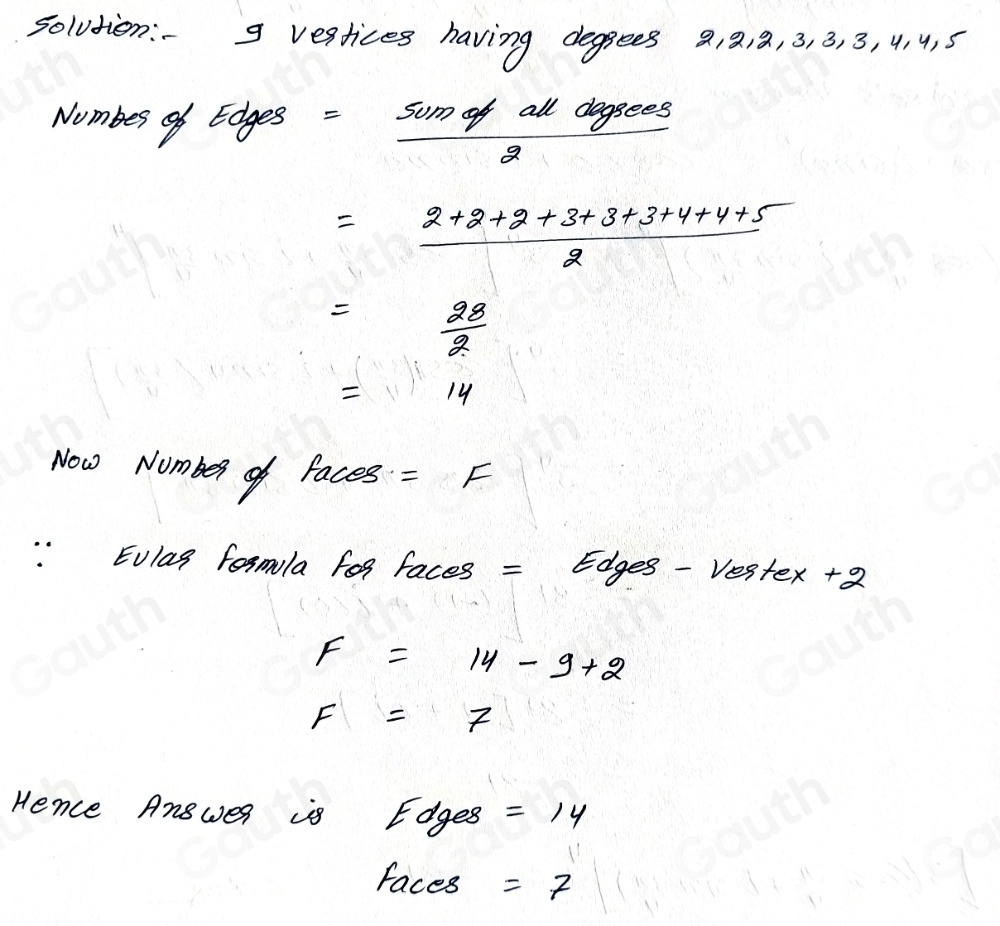 Solution:- 9 vertices having degrees 2,2,2,3,3,3,4,4,5
Number of Edges = Sum of all degrees / 2
= 2+2+2+3+3+3+4+4+5 / 2
= 28 / 2
= 14
Now Number of faces = F
∵ Eular formula for faces = Edges - Vertex + 2
F = 14 - 9 + 2
F = 7
Hence Answer is Edges = 14
faces = 7